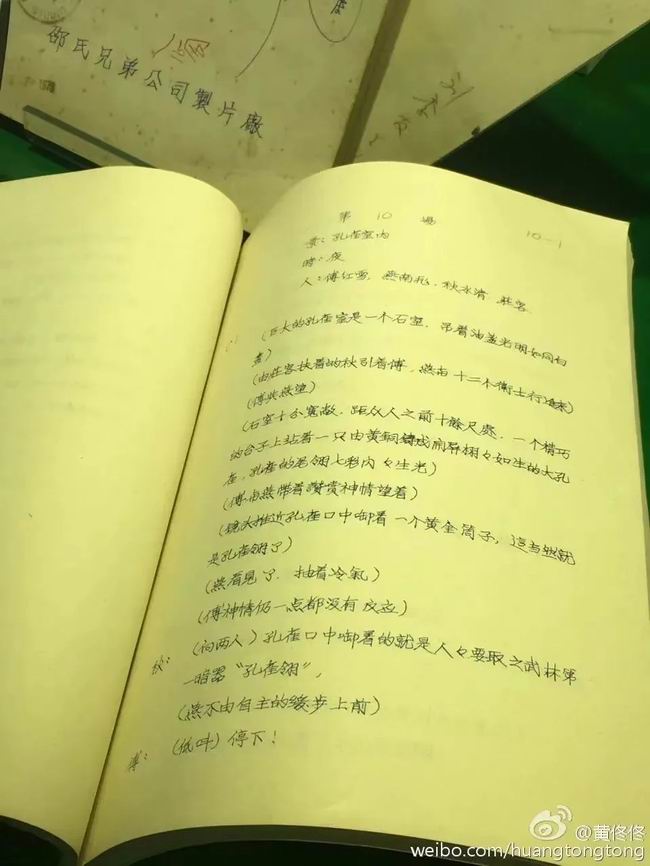 邵氏兄弟公司製片廠
第 10 場
10-1
景：孔雀室内
時：夜
人：傅紅雪．燕南飛．秋水清．莊客
（巨大的孔雀室是一个石室．吊着油盏光明如同白
晝）
（由莊客扶着的秋引着傅，燕由十二个衛士行進來）
（傅與燕望）
（石室十分寬敞．距众人之前十餘尺處．一个精巧
的台子上站着一只由黄銅鑄成而异栩々如生的大孔
雀，孔雀的尾翎七彩内々生光）
（傅由燕带着讚赏神情望着）
（鏡头推近孔雀口中啣着一个黄金筒子，這当然就
是孔雀翎了）
（燕看見了．抽着冷氣）
（傅神情仍一点都没有反应）
秋：（向两人）孔雀口中啣着的就是人々要取之武林第
一暗器“孔雀翎”，
（燕不由自主的缓步上前）
傅：（低叫）停下！
@黄佟佟
weibo.com/huangtongtong